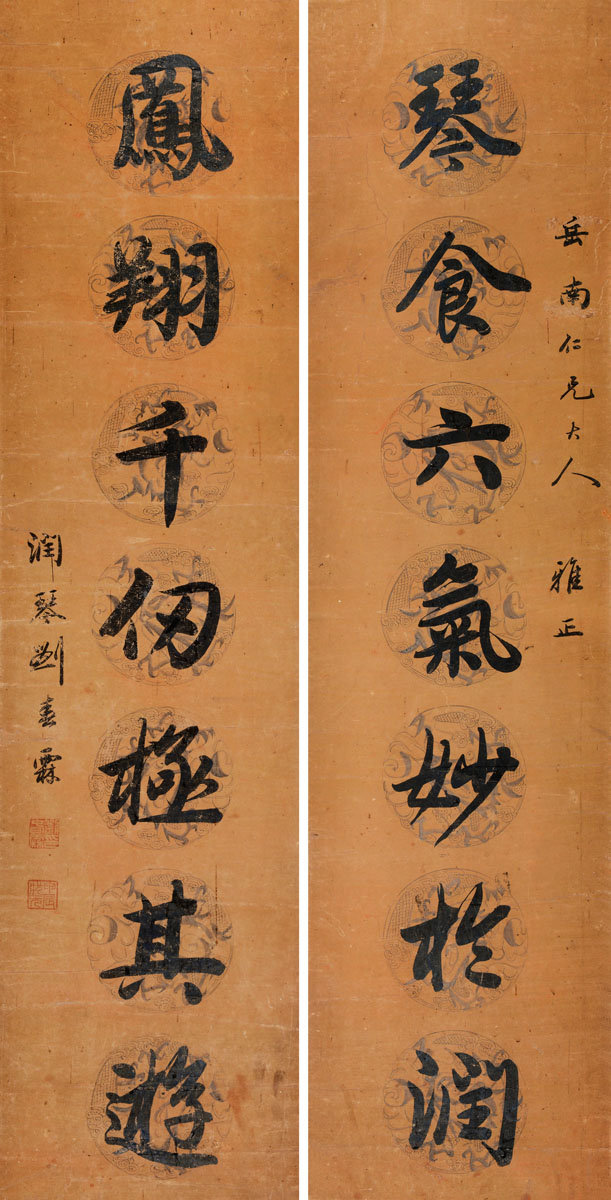 岳南仁兄大人 雅正
琴食六氣妙於潤
鳳翔千仞極其遊
潤琴劉春霖